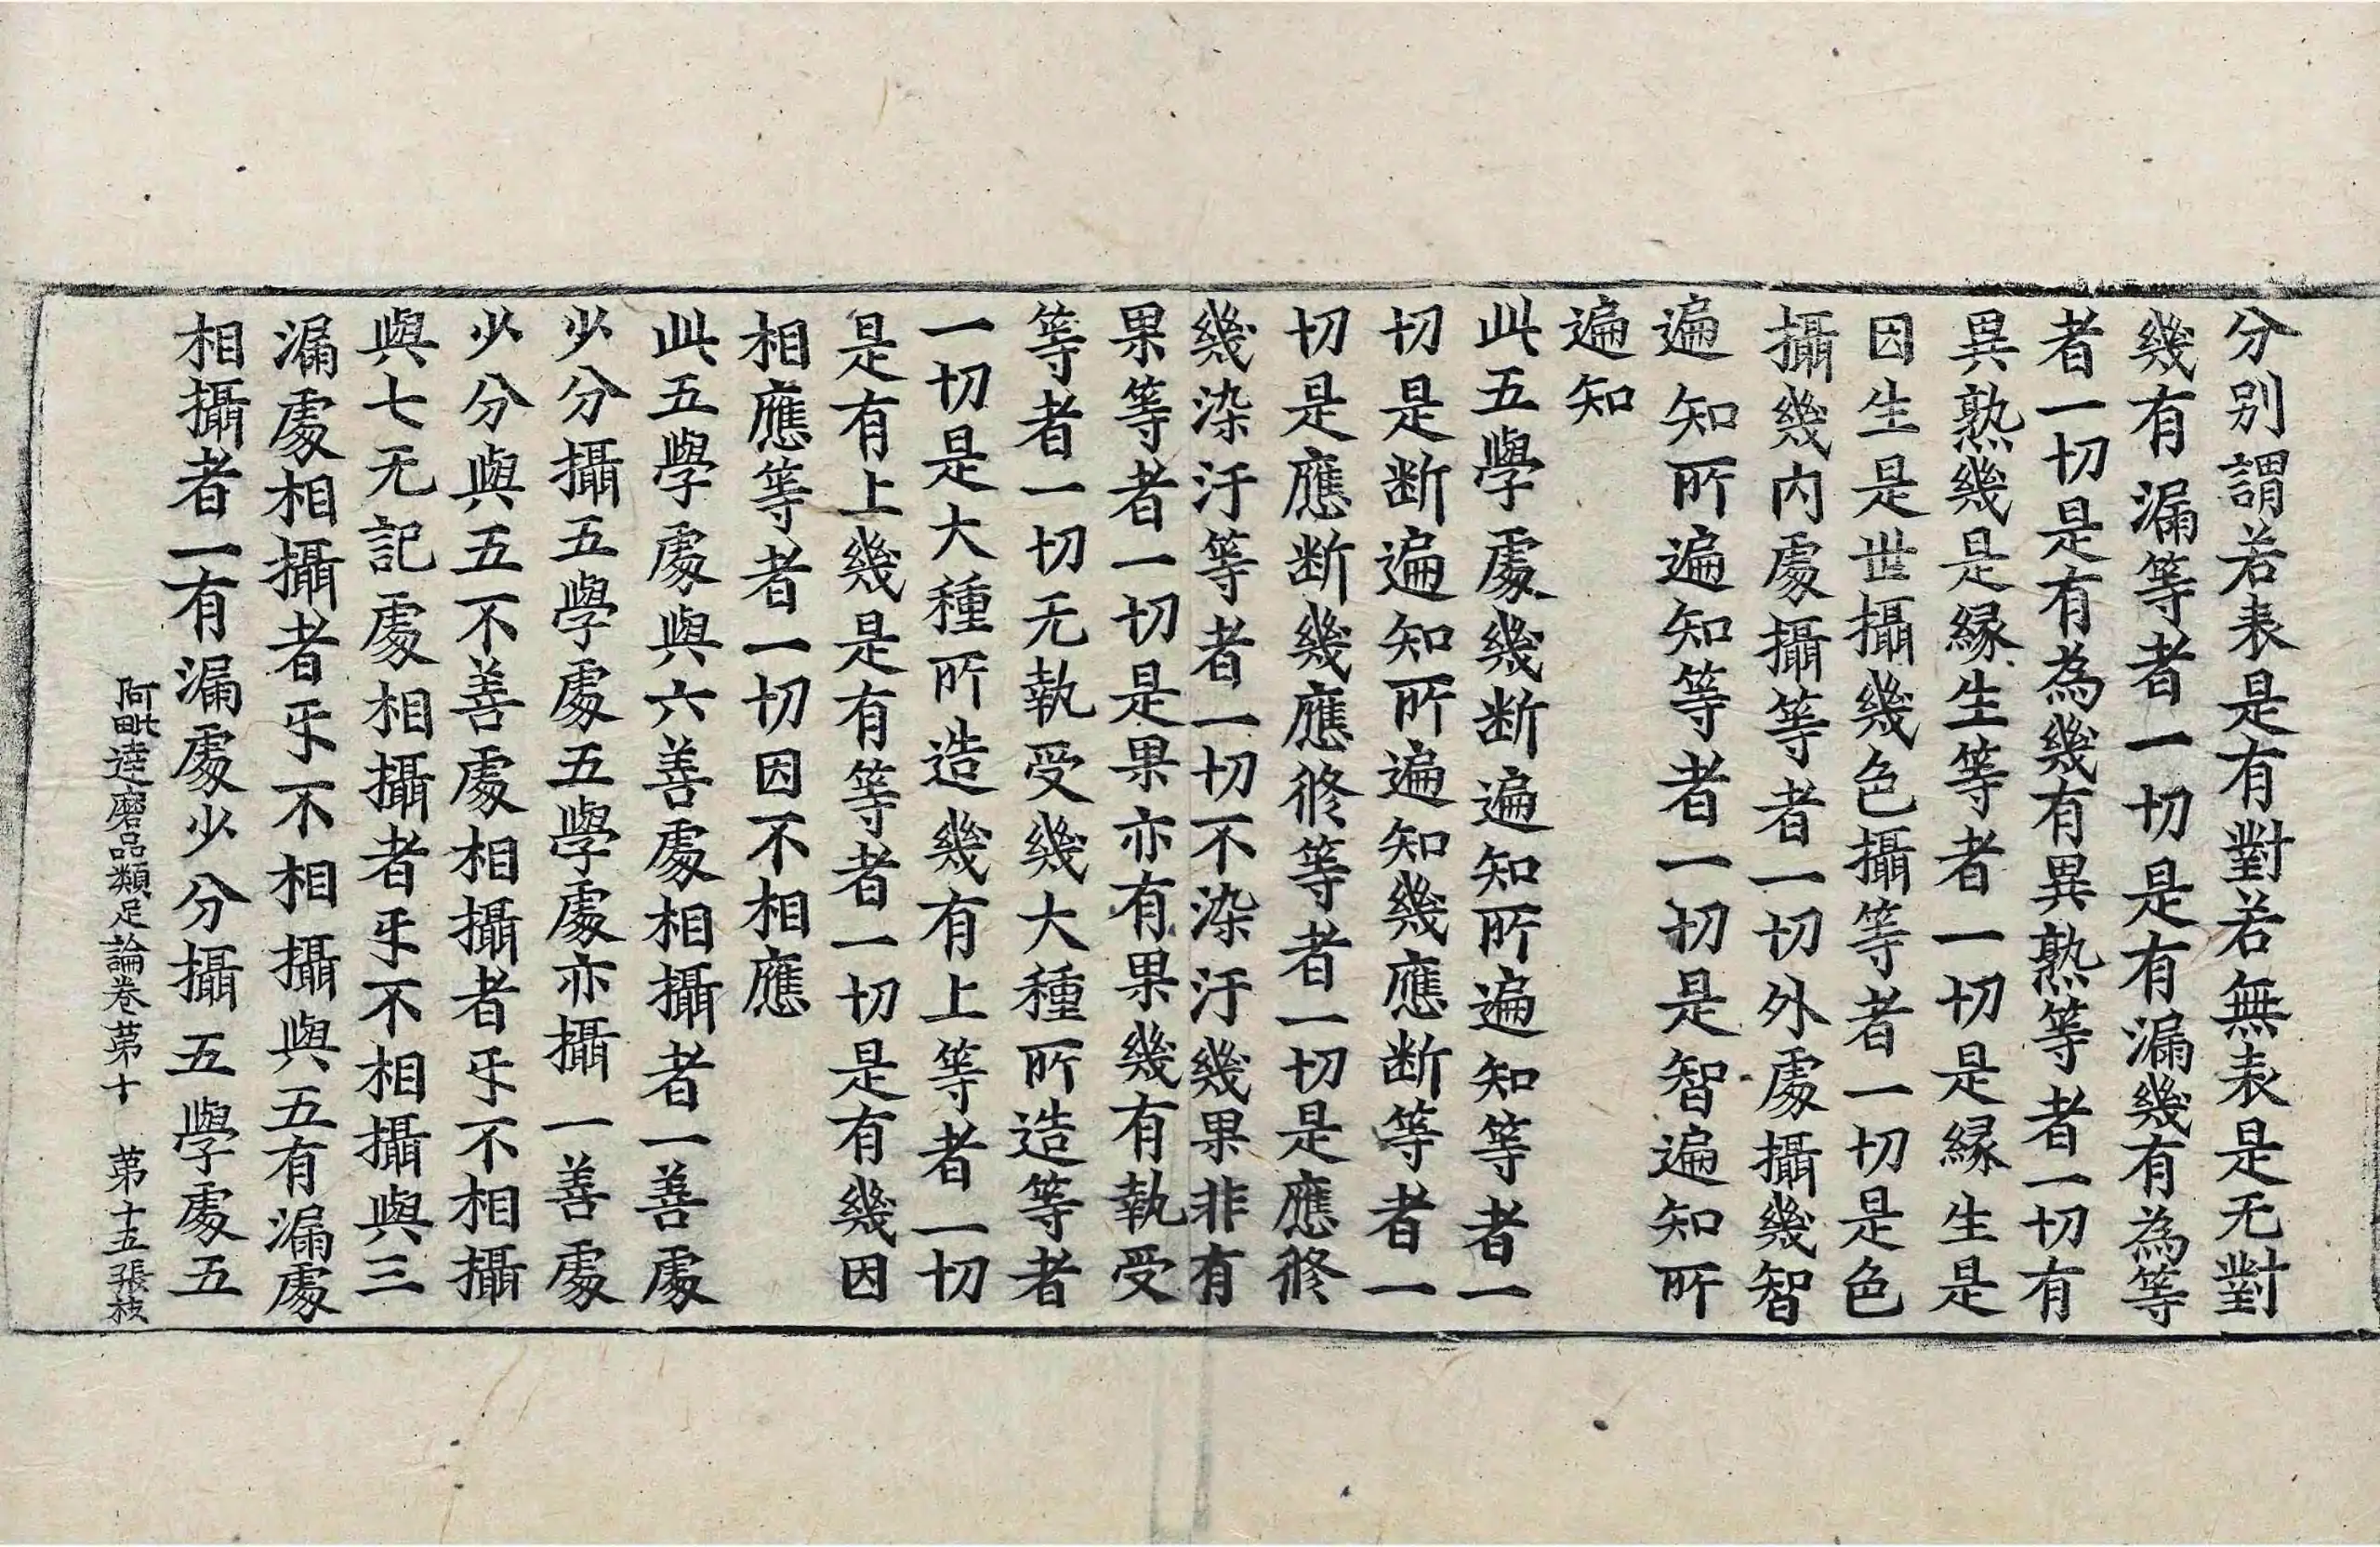 分別謂若表是有對若無表是无對
幾有漏等者一切是有漏幾有為等
者一切是有為幾有異熟等者一切有
異熟幾是緣生等者一切是緣生是
因生是世攝幾色攝等者一切是色
攝幾內處攝等者一切外處攝幾智
遍知所遍知等者一切是智遍知所
遍知
此五學處幾断遍知所遍知等者一
切是断遍知所遍知幾應断等者一
切是應断幾應修等者一切是應修
幾染汙等者一切不染汙幾果非有
果等者一切是果亦有果幾有執受
等者一切无執受幾大種所造等者
一切是大種所造幾有上等者一切
是有上幾是有等者一切是有幾因
相應等者一切因不相應
此五學處與六善處相攝者一善處
少分攝五學處五學處亦攝一善處
少分與五不善處相攝者㸦不相攝
與七无記處相攝者㸦不相攝與三
漏處相攝者㸦不相攝與五有漏處
相攝者一有漏處少分攝五學處五
阿毗達磨品類足論卷苐十 苐十五張 枝